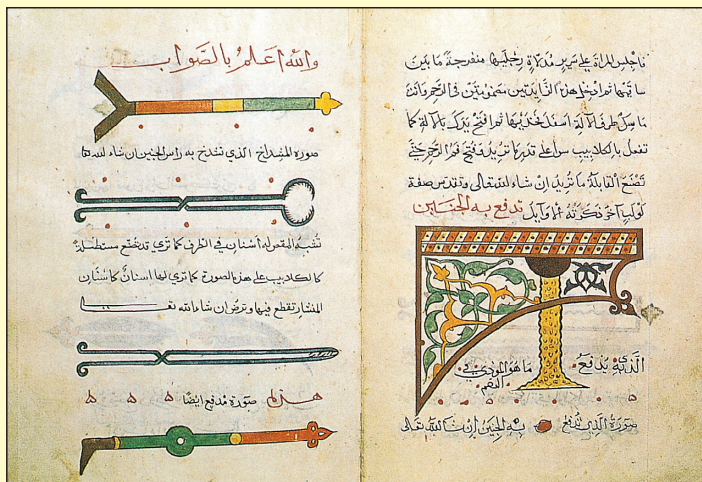 فاجلس المراة على سرير مدلاة رجليها منفرجة ما بين
ساقيها ثم ادخل هذه الزايدتين مضمومتين في الرحم وانت
ماسك طرف الالة اسفل فخذيها ثم افتح يدك بالالة كما
تفعل بالكلاليب سوا على قدر ما تريد وفتح فم الرحم حتى
تصنع القابلة ما تريد ان شاء الله تعالى وتقدس صفة
لولب اخر ذكرته الاوايل تدفع به الجنين
الذي يدفع ما هو المودي
صورة الذي تدفع به الجنين إن شاء الله تعالى
والله اعلم بالصواب
صورة المشداخ الذي تشدخ به راس الجنين ان شاء الله
تشبه المقص له اسنان في الطرف كما ترى وقد تصنع مستطيلة
كالكلاليب على هذه الصورة كما ترى لها اسنان كاسنان
المنشار تقطع فيها وترض ان شاء الله تعالى
صورة مدفع ايضا